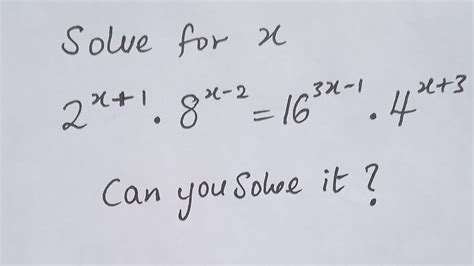 Solve for x
2^{x+1} . 8^{x-2} = 16^{3x-1} . 4^{x+3}
Can you Solve it ?